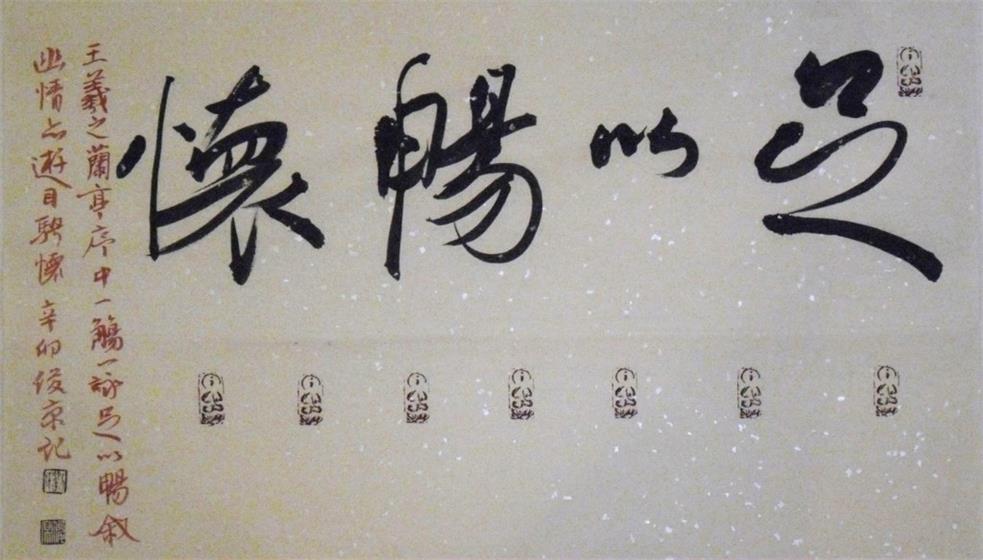 足以暢懷
王羲之蘭亭序中一觴一詠足以暢叙
幽情亦遊目騁懷 辛卯俊京記